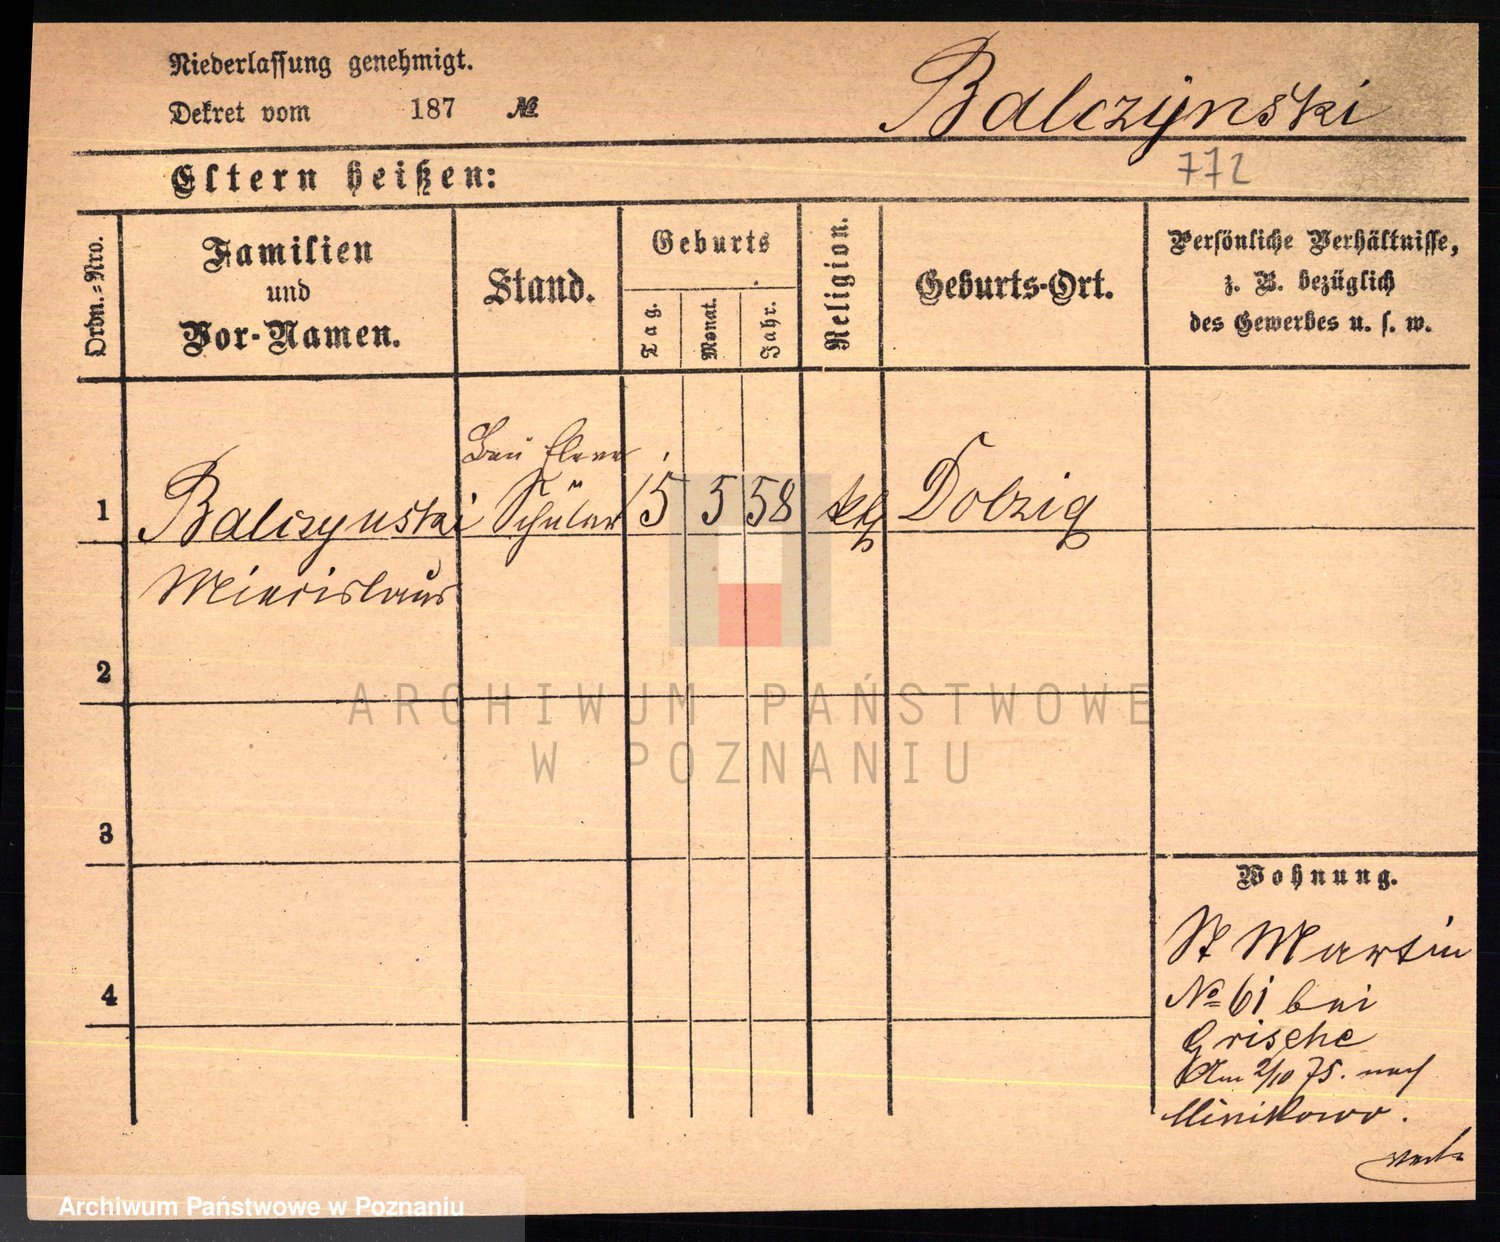 Niederlassung genehmigt.
Dekret vom 187 №
Balczÿnski
772
Eltern heißen:
Ordn.=Nro.
Familien
und
Vor-Namen.
Stand.
Geburts
Tag.
Monat.
Jahr.
Religion.
Geburts-Ort.
Persönliche Verhältnisse,
z. B. bezüglich
des Gewerbes u. s. w.
Bau Eleve
1 Balczynski Schüler 15 5 58 kth Dolzig
Miecislaus
2
ARCHIWUM PAŃSTWOWE
W POZNANIU
3
Wohnung.
4
St Martin
No 61 bei
Grische
Am 2/10 75. nach
Minikowo.
Archiwum Państwowe w Poznaniu